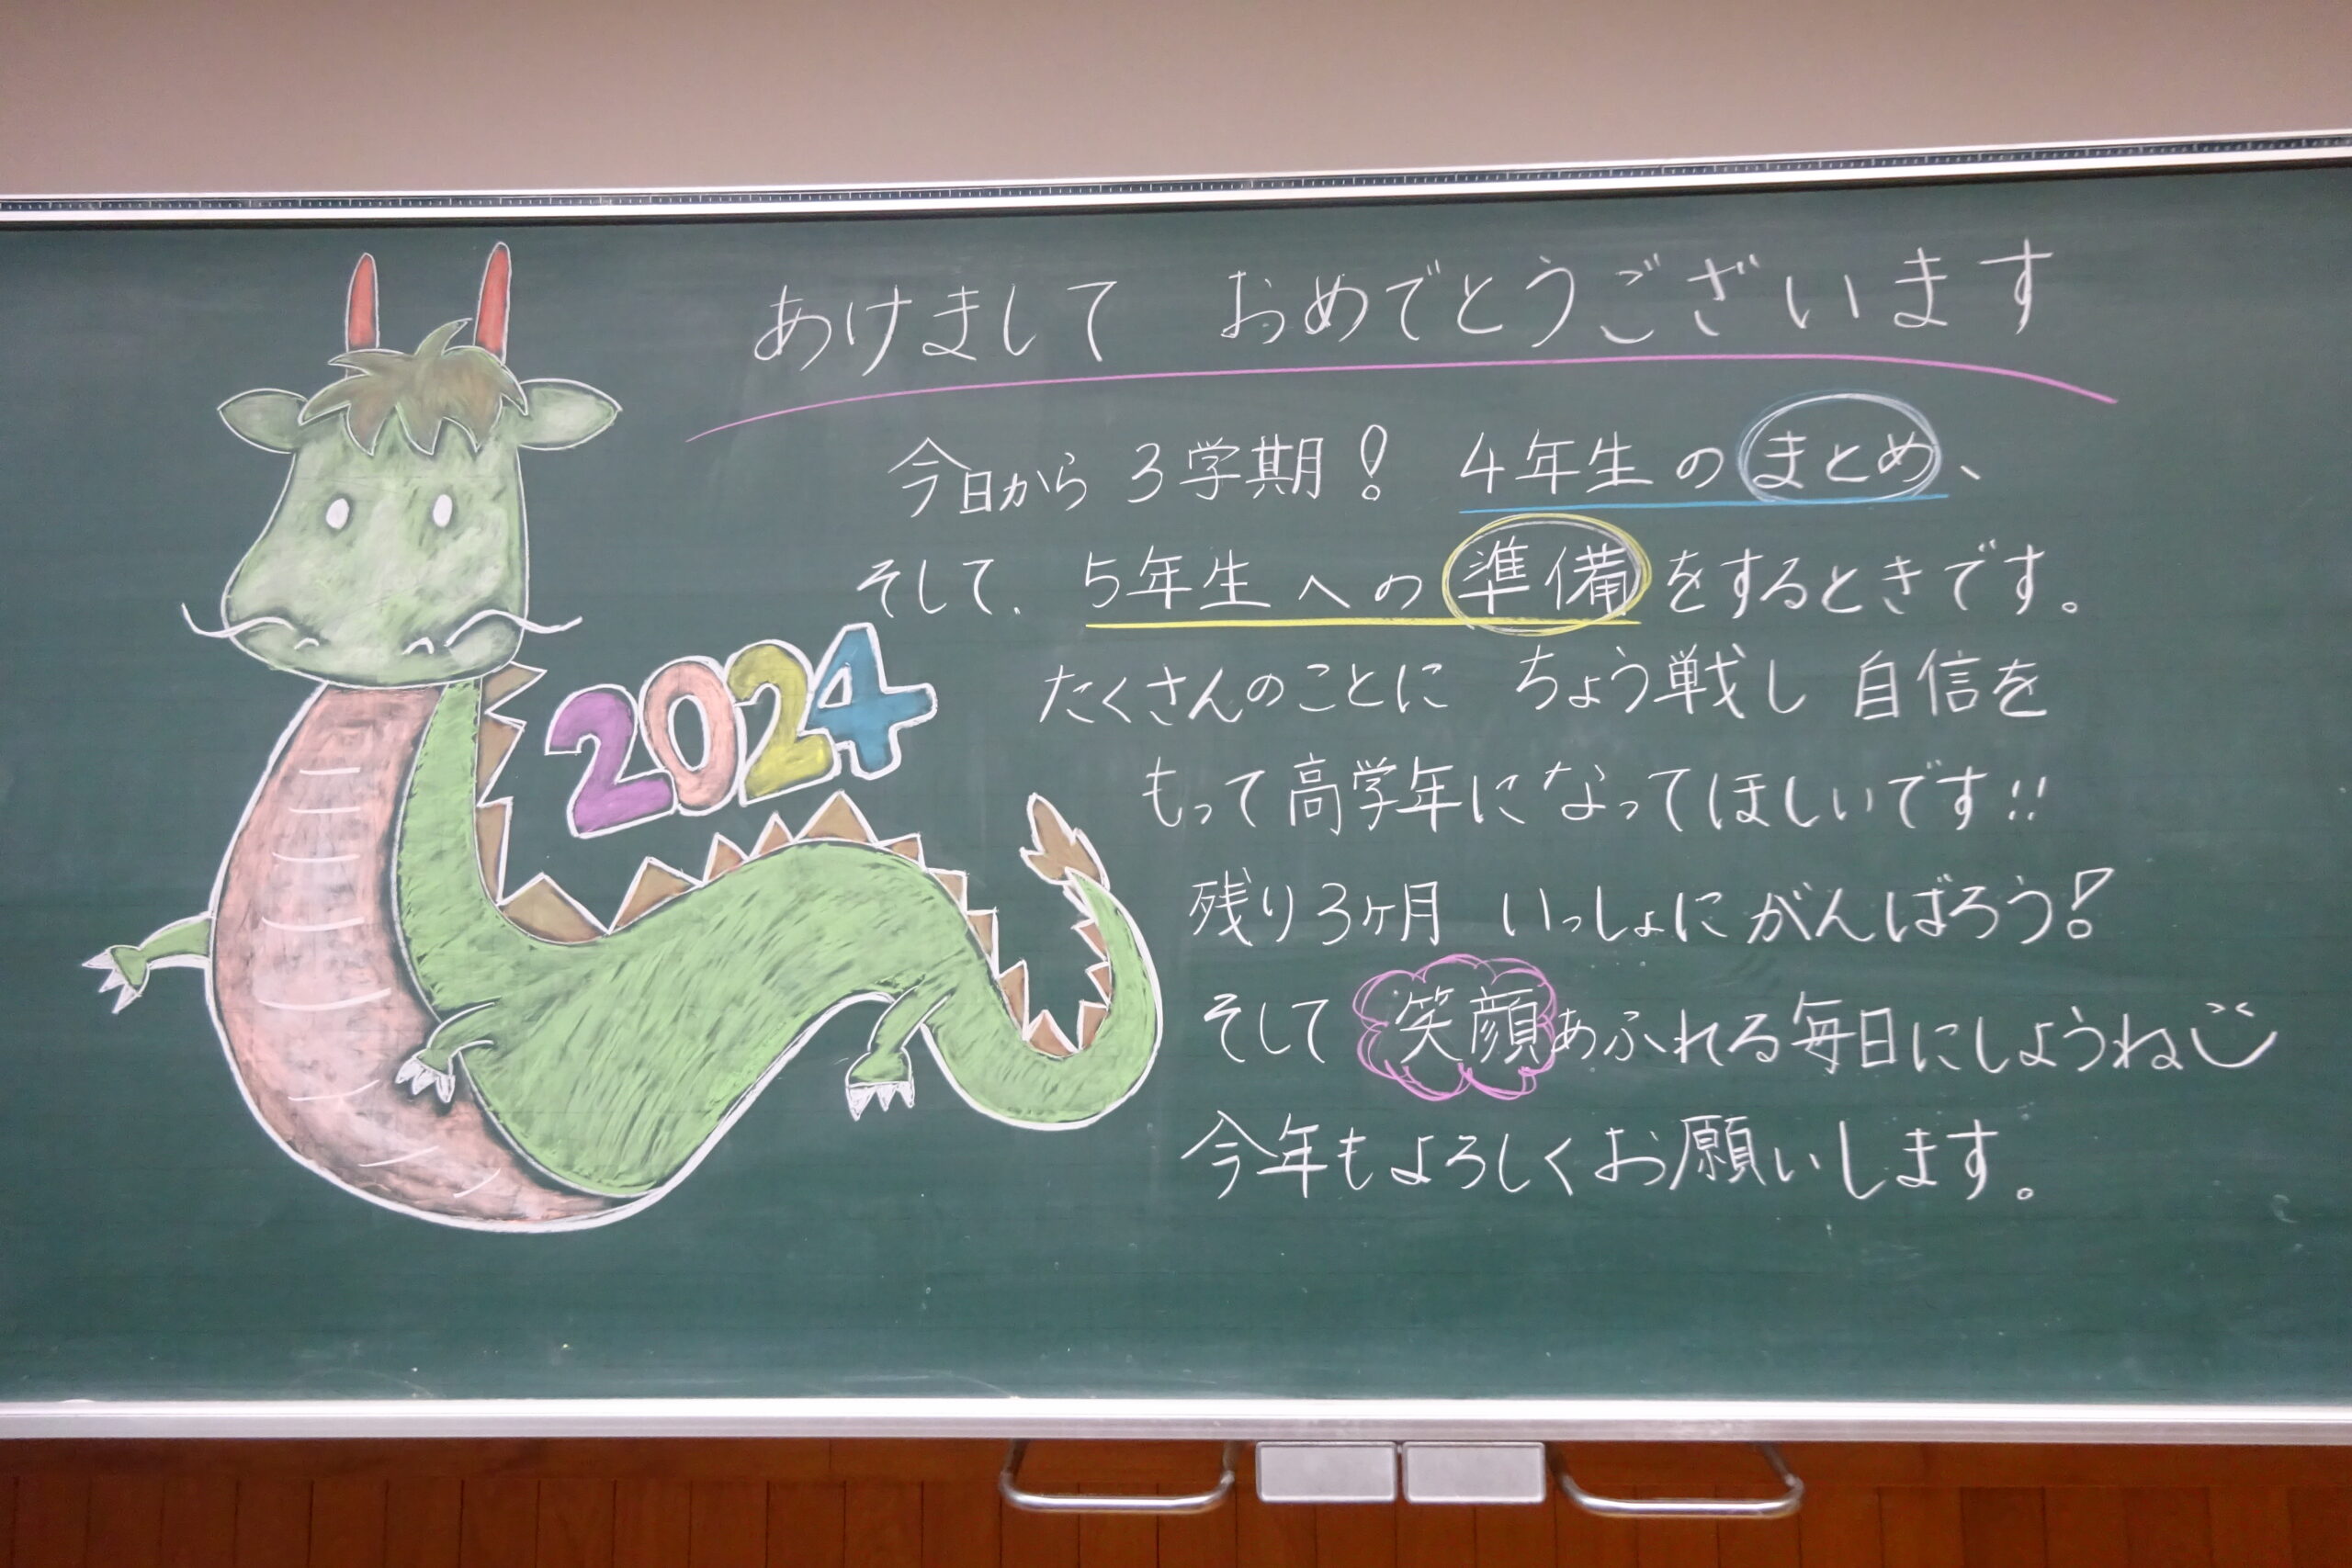 あけまして おめでとうございます
今日から 3学期! 4年生の まとめ、
そして、5年生への 準備 をするときです。
2024
たくさんのことに ちょう戦し 自信を
もって高学年になってほしいです!!
残り3ヶ月 いっしょにがんばろう!
そして 笑顔あふれる毎日にしようね
今年もよろしくお願いします。